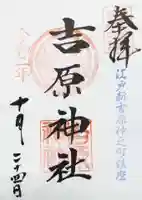 奉拝
江戸新吉原仲之町鎮座
吉原神社
十月二十四日